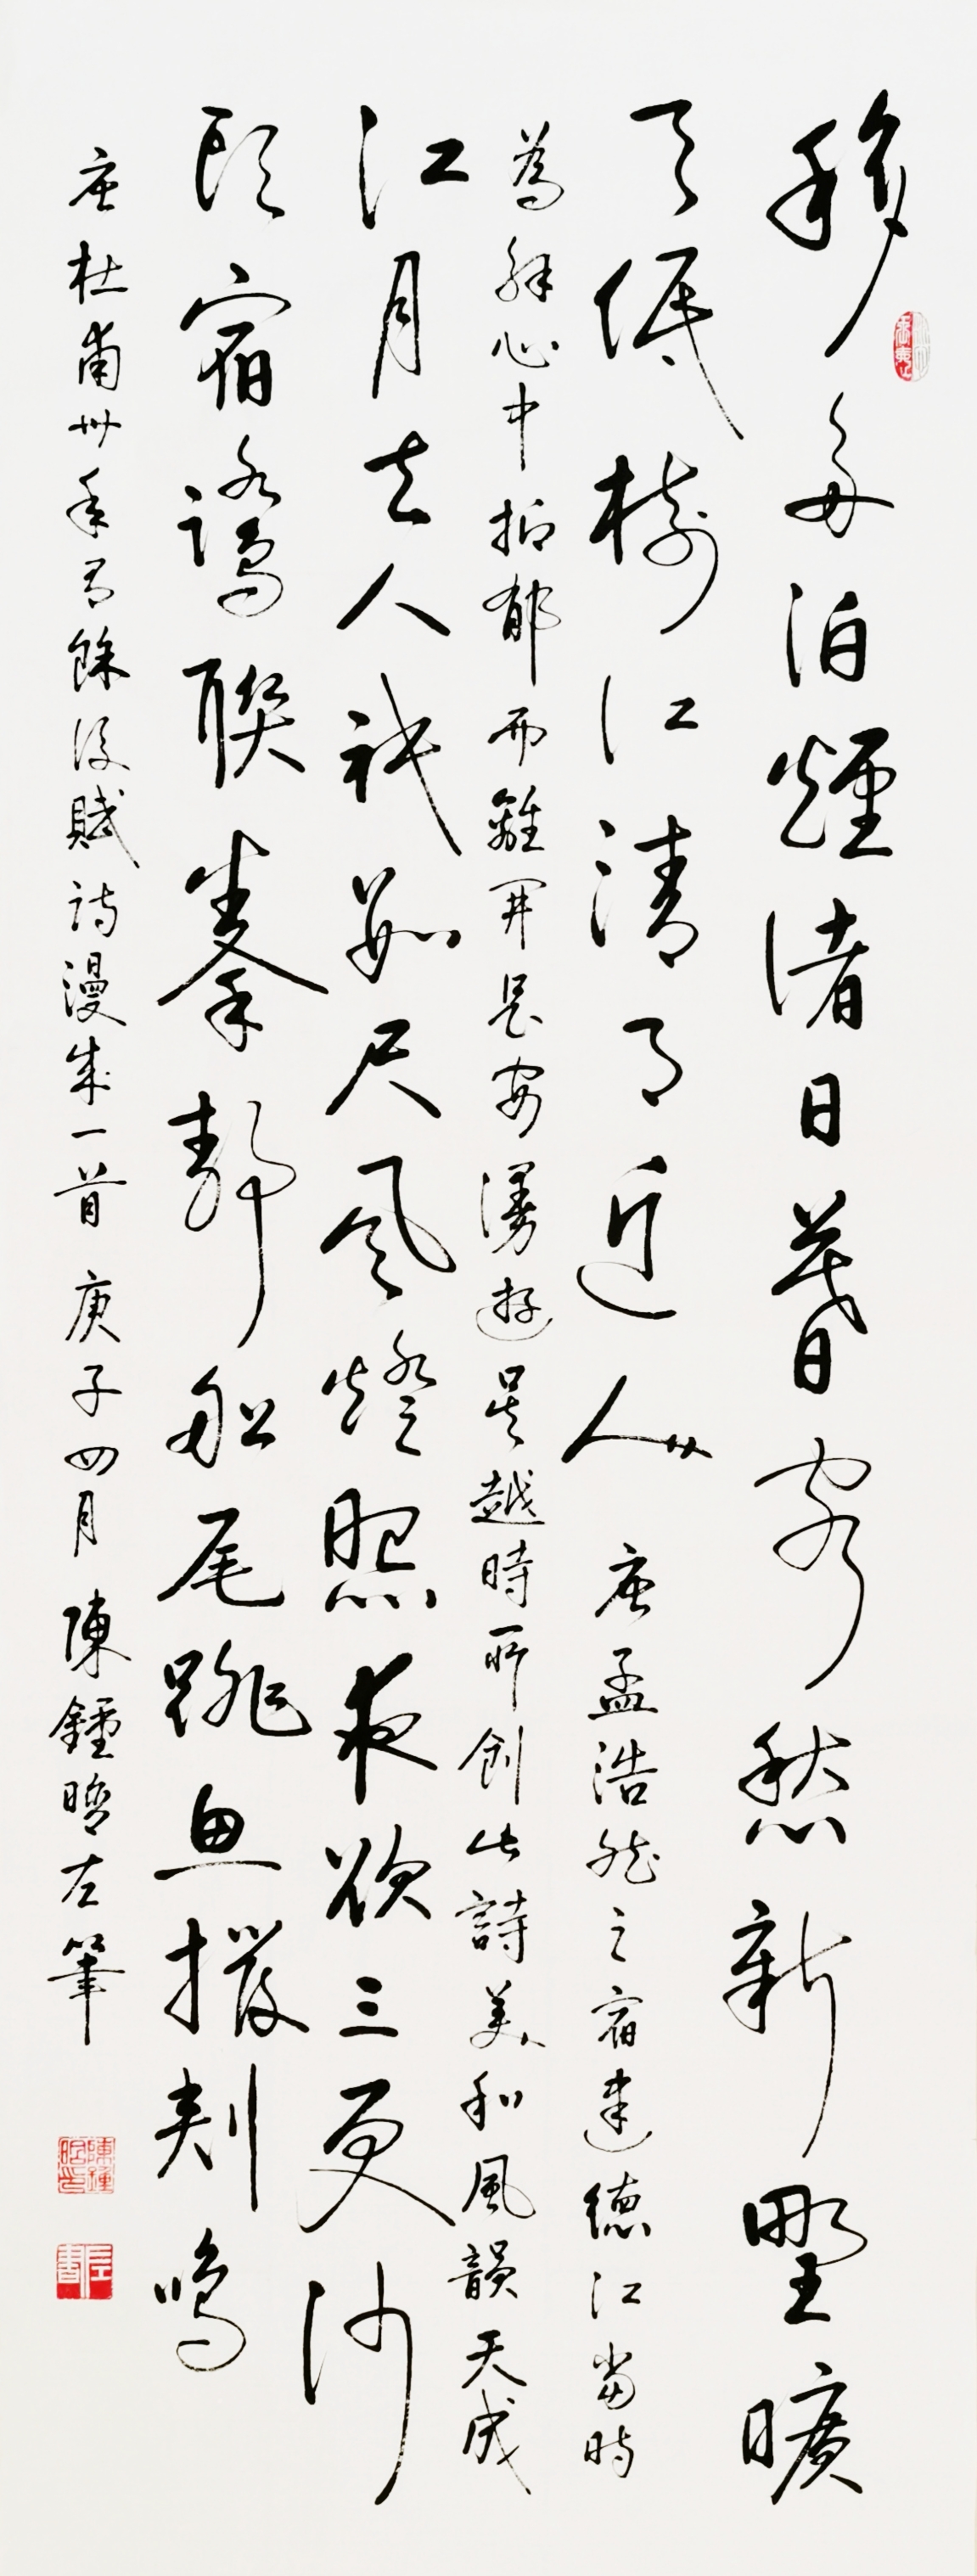 移舟泊煙渚日暮客愁新野曠
天低樹江清月近人 唐孟浩然之宿建德江當時
為解心中抑郁而離開長安漫遊吳越時所創此詩美和風韻天成
江月去人祇數尺風燈照夜欲三更沙
頭宿鷺聯拳靜船尾跳魚撥剌鳴
唐杜甫卅年有餘後賦詩漫成一首 庚子四月 陳鍾晗左筆
陳鍾晗印
左書